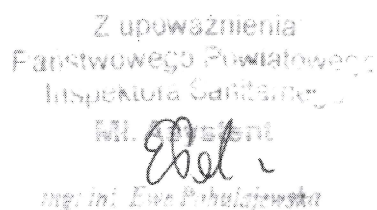 Z upoważnienia
Państwowego Powiatowego
Inspektora Sanitarnego
Mł. Asystent
mgr inż. Ewa